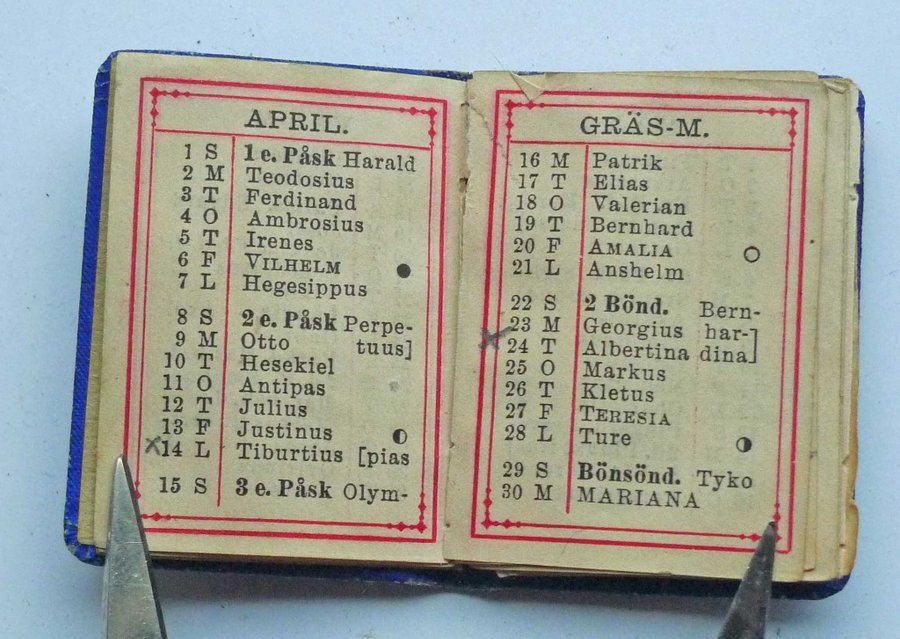 APRIL.
1 S 1 e. Påsk Harald
2 M Teodosius
3 T Ferdinand
4 O Ambrosius
5 T Irenes
6 F VILHELM
7 L Hegesippus
8 S 2 e. Påsk Perpe-
9 M Otto tuus]
10 T Hesekiel
11 O Antipas
12 T Julius
13 F Justinus
14 L Tiburtius [pias
15 S 3 e. Påsk Olym-
GRÄS-M.
16 M Patrik
17 T Elias
18 O Valerian
19 T Bernhard
20 F AMALIA
21 L Anshelm
22 S 2 Bönd. Bern-
23 M Georgius har-]
24 T Albertina dina]
25 O Markus
26 T Kletus
27 F TERESIA
28 L Ture
29 S Bönsönd. Tyko
30 M MARIANA